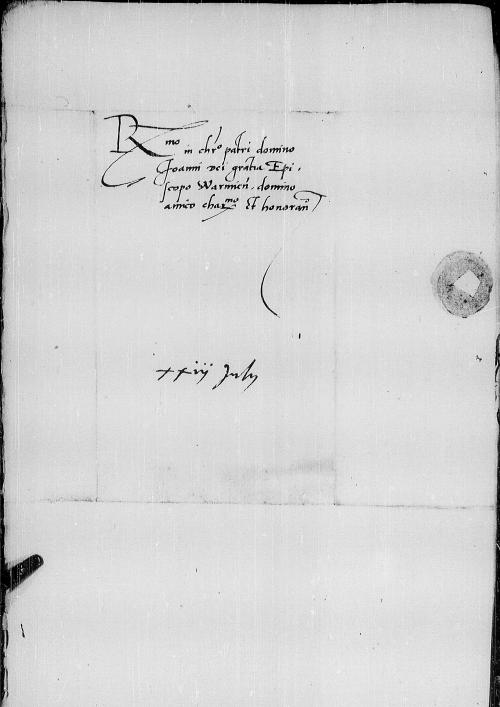 Rmo in chro patri domino
Joanni dei gratia Epi-
scopo Warmien. domino
amico charmo et honoran
xxiij Julij